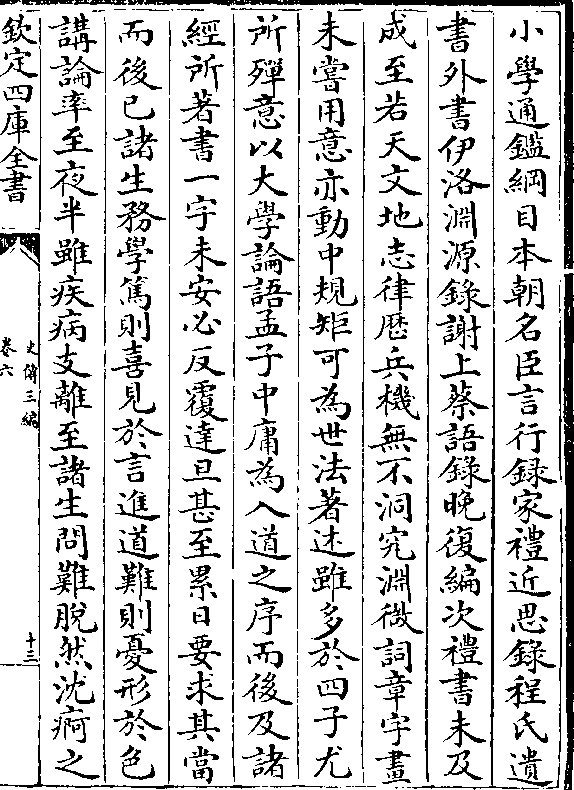 小學通鑑綱目本朝名臣言行録家禮近思錄程氏遺
書外書伊洛淵源錄謝上蔡語錄晩復編次禮書未及
成至若天文地志律厯兵機無不洞究淵微詞章字畫
未嘗用意亦動中規矩可為世法著述雖多於四子尤
所殫意以大學論語孟子中庸為入道之序而後及諸
經所著書一字未安必反覆達旦甚至累日要求其當
而後已諸生務學篤則喜見於言進道難則憂形於色
講論率至夜半雖疾病支離至諸生問難脫然沈痾之
欽定四庫全書
史傳三編
卷六
十三